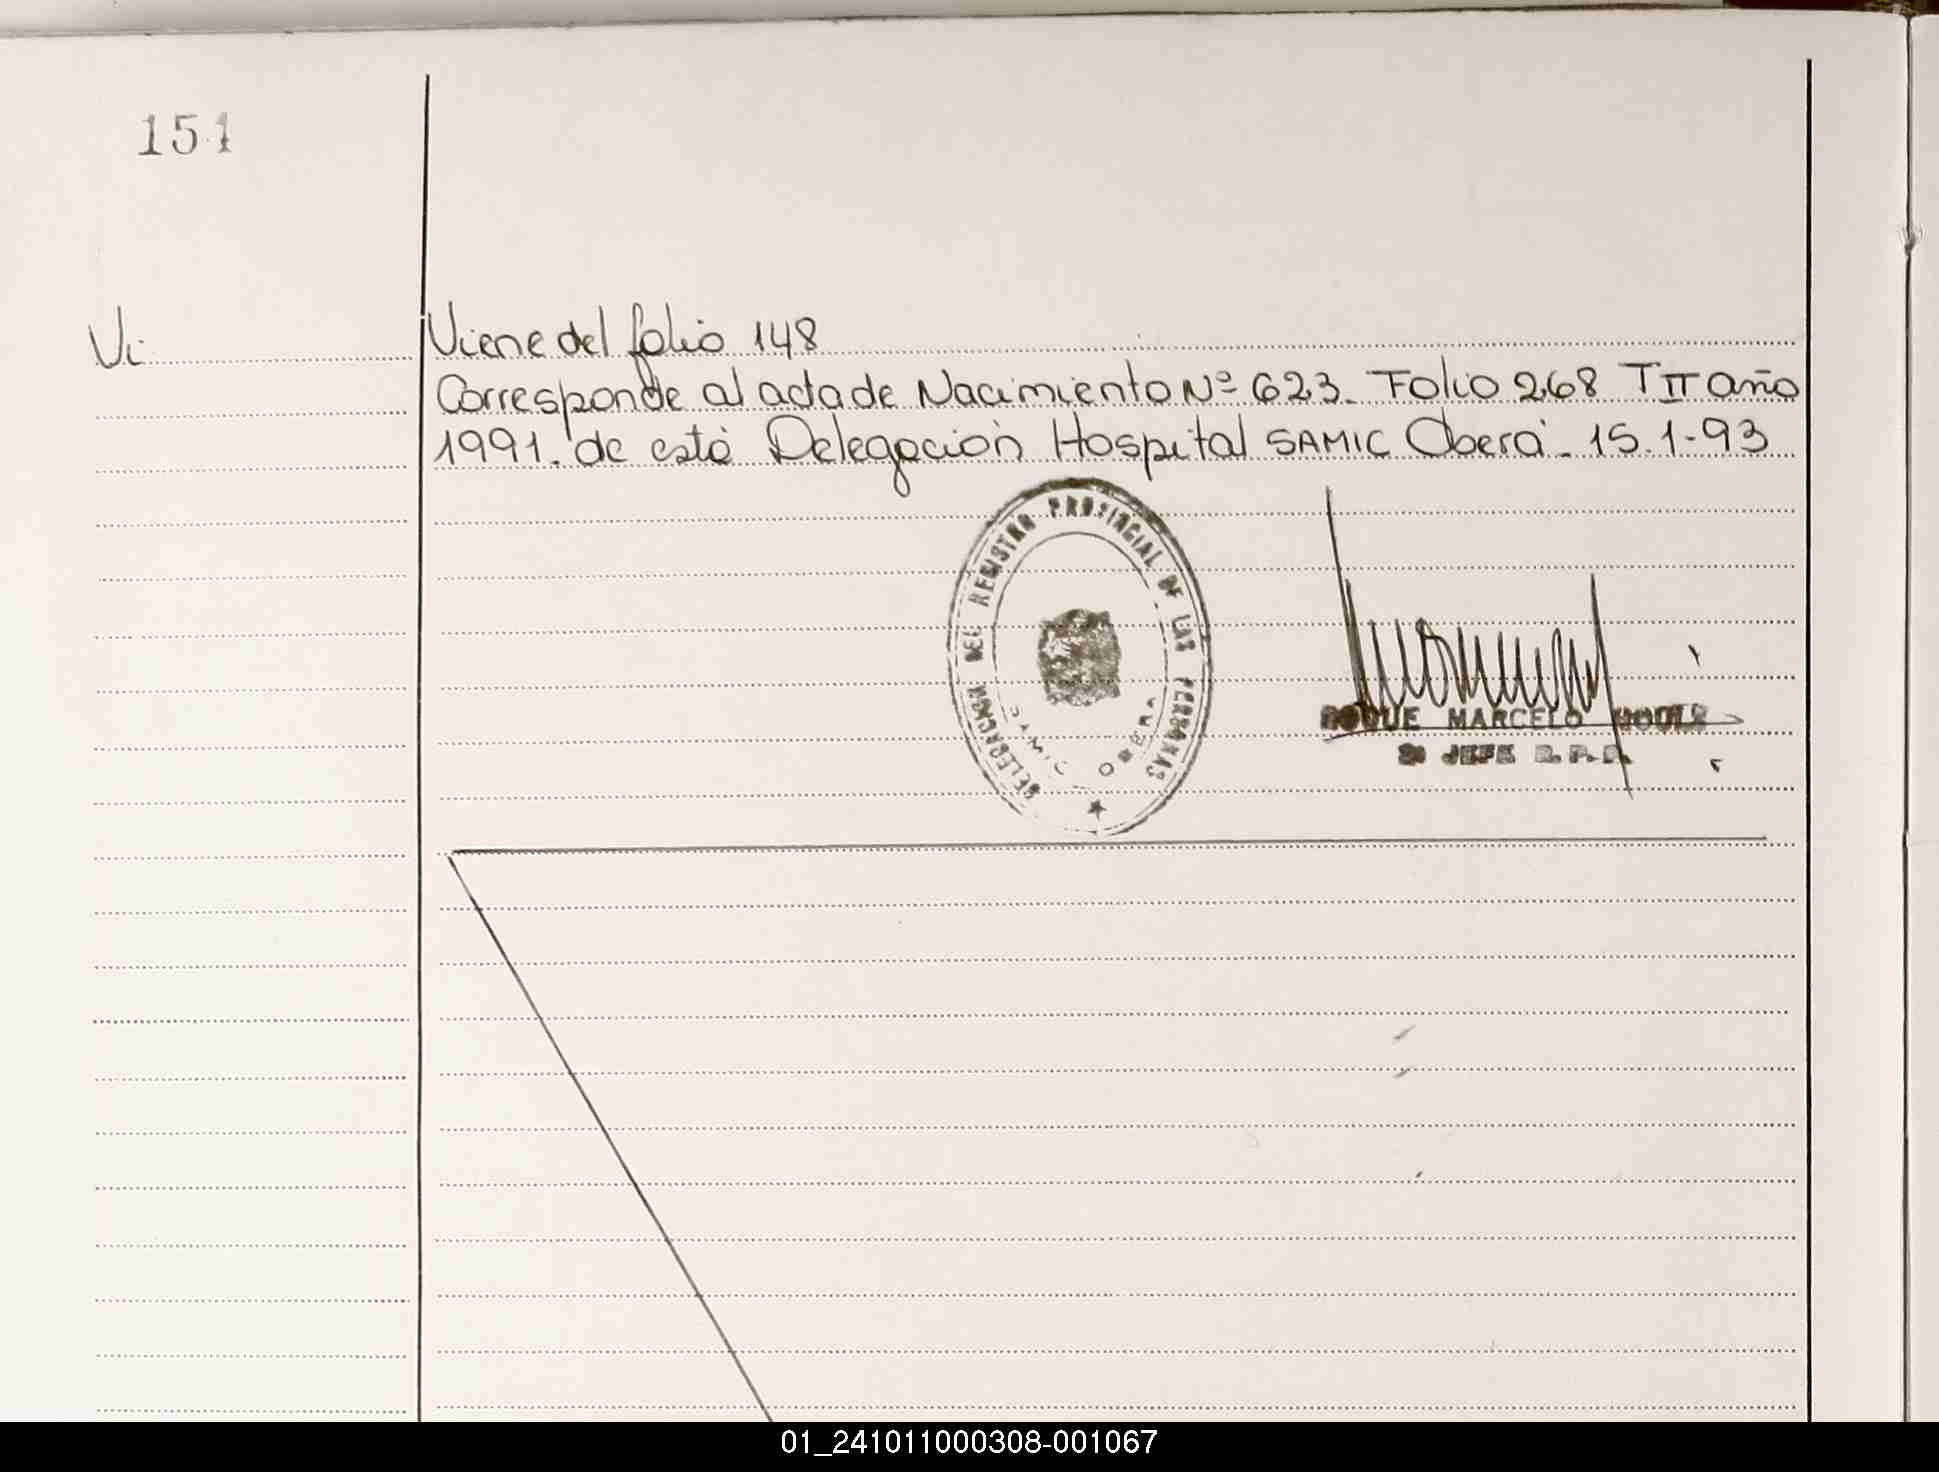 151
Vi
Viene del folio 148
Corresponde al acta de Nacimiento Nº 623. Folio 268 T II año
1991. de esta Delegación Hospital SAMIC Oberá. 15.1-93
DELEGACION DEL REGISTRO PROVINCIAL DE LAS PERSONAS
SAMIC OBERA
ROQUE MARCELO
JEFE R.P.P.
01_241011000308-001067